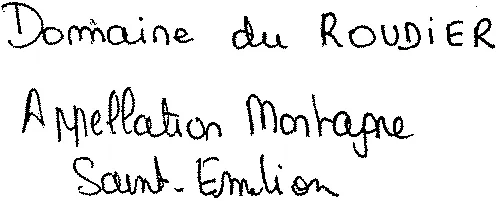 Domaine du ROUDIER
Appellation Montagne
Saint-Emilion